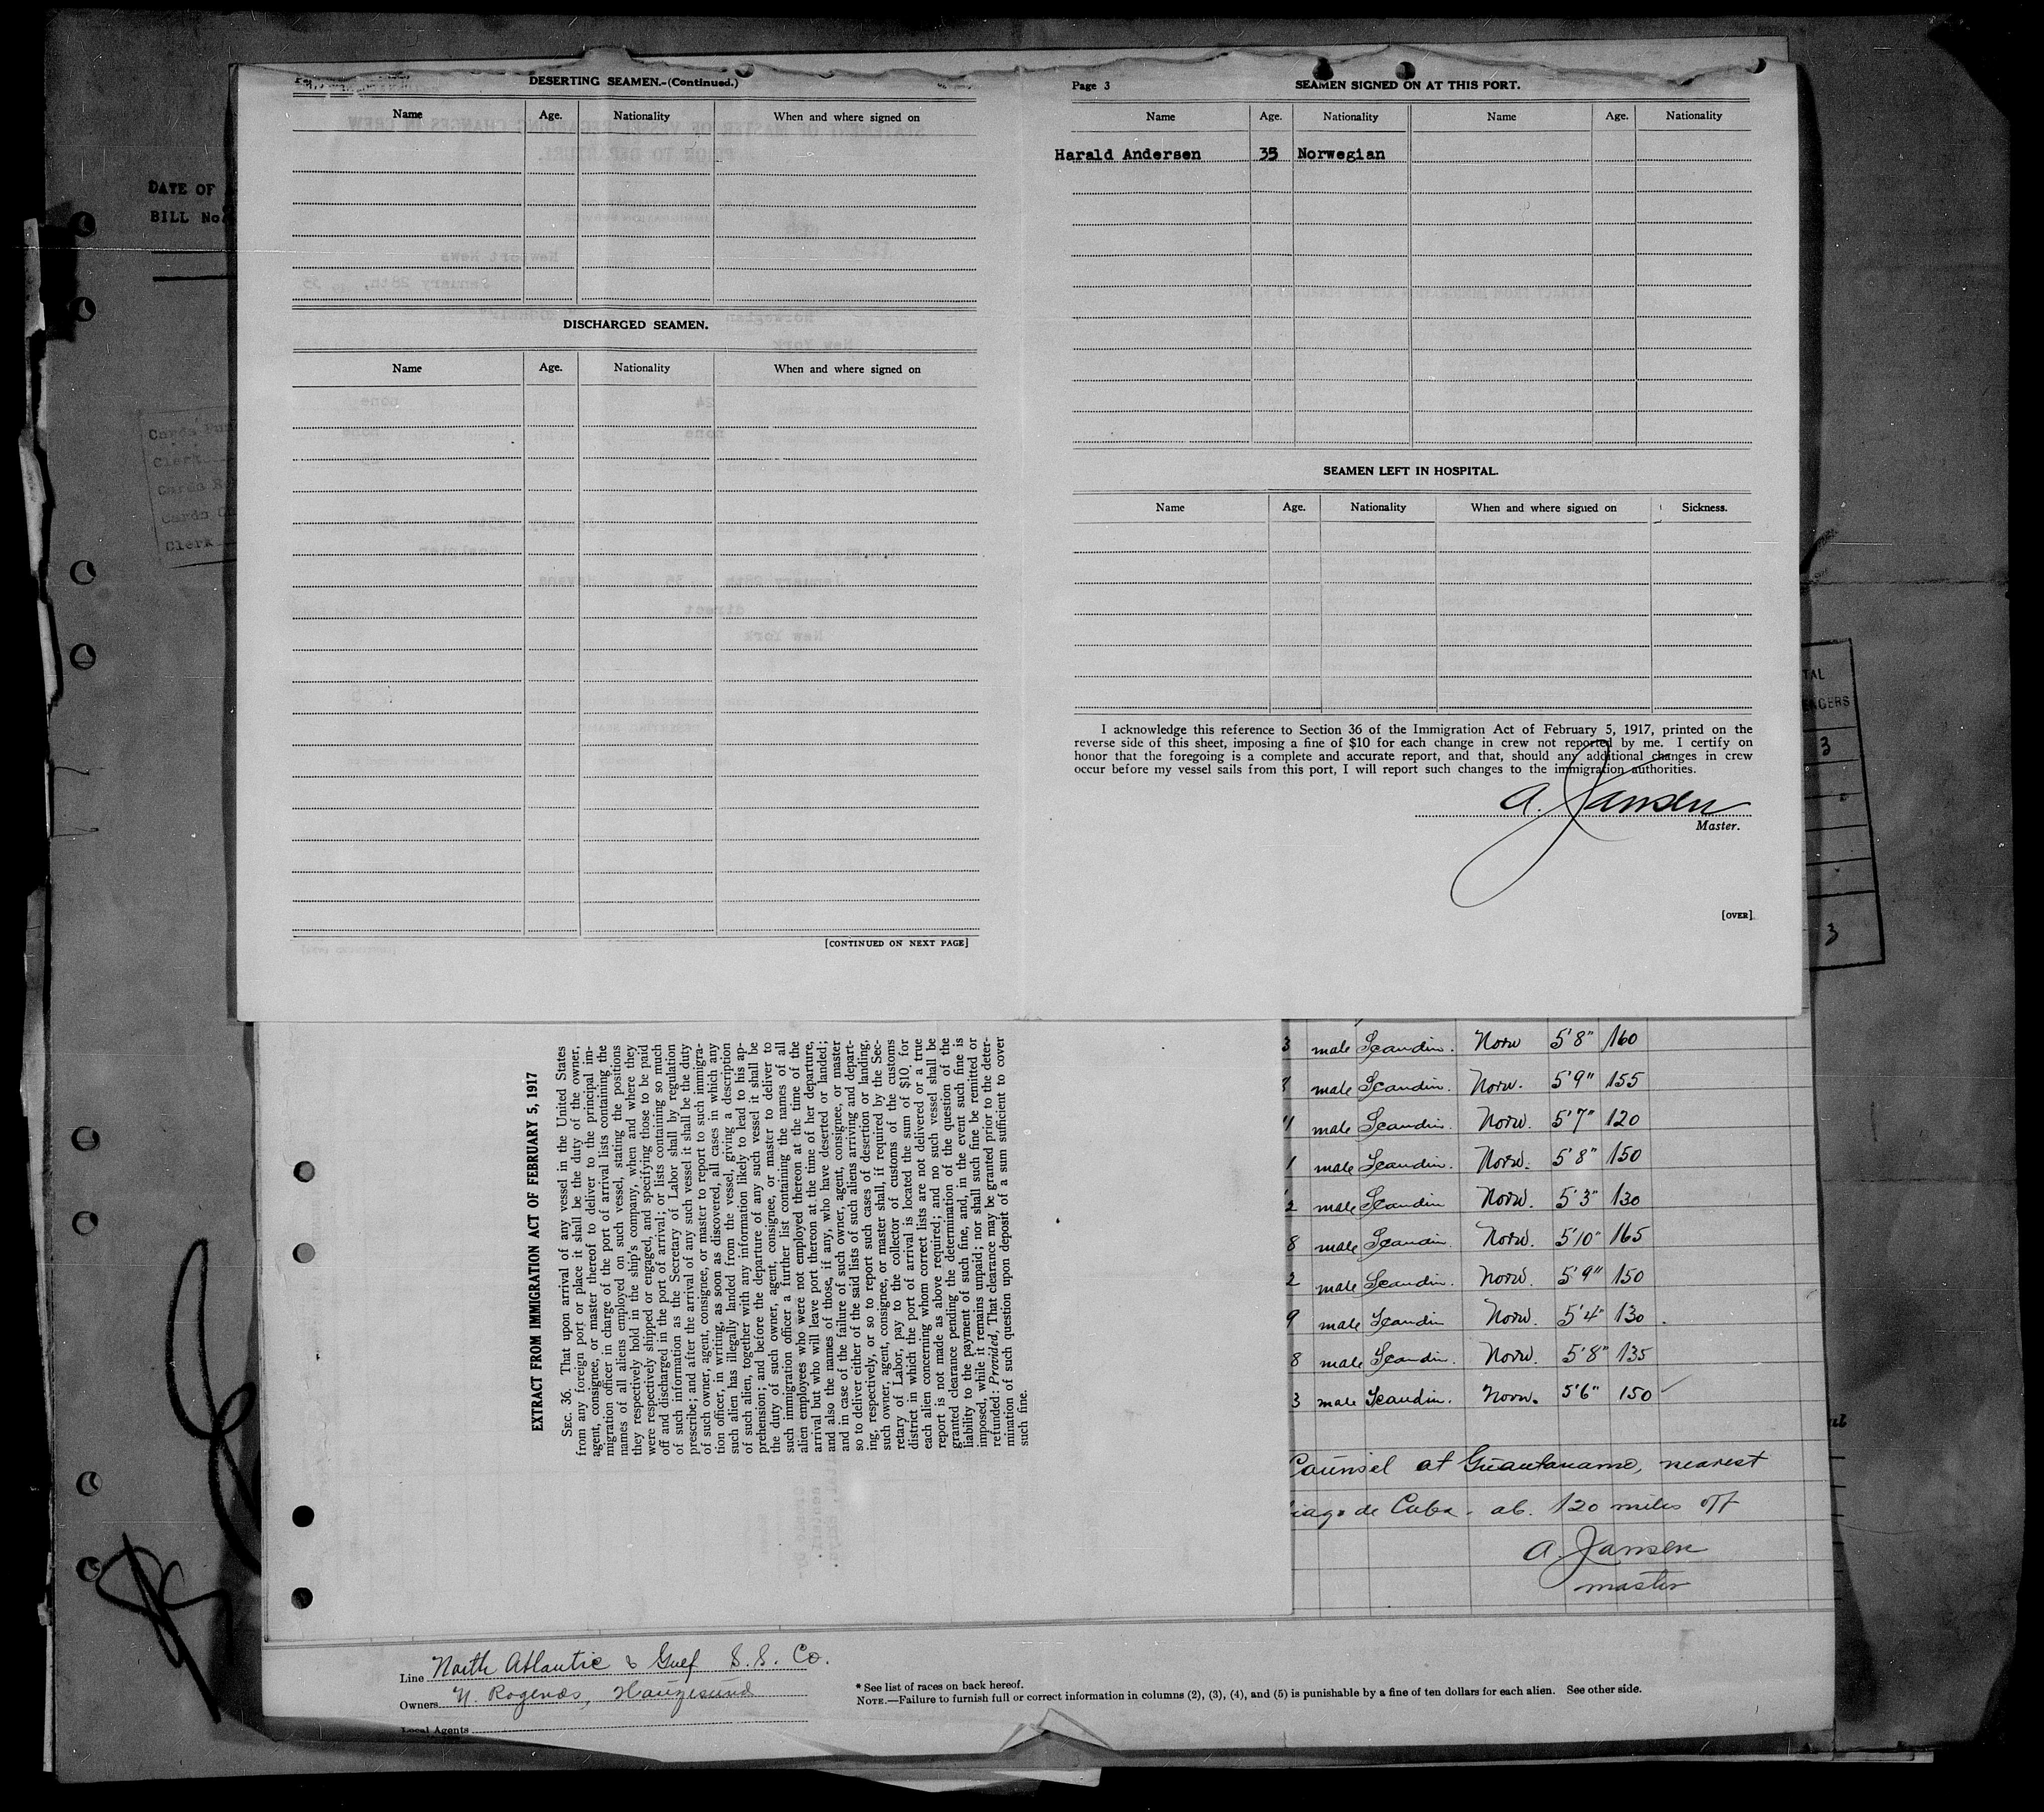 DATE OF
BILL No.
DESERTING SEAMEN.-(Continued.)
Name Age. Nationality When and where signed on
DISCHARGED SEAMEN.
Name Age. Nationality When and where signed on
[CONTINUED ON NEXT PAGE]
Page 3 SEAMEN SIGNED ON AT THIS PORT.
Name Age. Nationality Name Age. Nationality
Harald Andersen 35 Norwegian
SEAMEN LEFT IN HOSPITAL.
Name Age. Nationality When and where signed on Sickness.
I acknowledge this reference to Section 36 of the Immigration Act of February 5, 1917, printed on the
reverse side of this sheet, imposing a fine of $10 for each change in crew not reported by me. I certify on
honor that the foregoing is a complete and accurate report, and that, should any additional changes in crew
occur before my vessel sails from this port, I will report such changes to the immigration authorities.
A. Jansen
Master.
[OVER]
Cards
Clerk
Cards
Cards
Clerk
3
3
EXTRACT FROM IMMIGRATION ACT OF FEBRUARY 5, 1917
SEC. 36. That upon arrival of any vessel in the United States
from any foreign port or place it shall be the duty of the owner,
agent, consignee, or master thereof to deliver to the principal im-
migration officer in charge of the port of arrival lists containing the
names of all aliens employed on such vessel, stating the positions
they respectively hold in the ship's company, when and where they
were respectively shipped or engaged, and specifying those to be paid
off and discharged in the port of arrival; or lists containing so much
of such information as the Secretary of Labor shall by regulation
prescribe; and after the arrival of any such vessel it shall be the duty
of such owner, agent, consignee, or master to report to such immigra-
tion officer, in writing, as soon as discovered, all cases in which any
such alien has illegally landed from the vessel, giving a description
of such alien, together with any information likely to lead to his ap-
prehension; and before the departure of any such vessel it shall be
the duty of such owner, agent, consignee, or master to deliver to
such immigration officer a further list containing the names of all
alien employees who were not employed thereon at the time of the
arrival but who will leave port thereon at the time of her departure,
and also the names of those, if any, who have deserted or landed;
and in case of the failure of such owner, agent, consignee, or master
so to deliver either of the said lists of such aliens arriving and depart-
ing, respectively, or so to report such cases of desertion or landing,
such owner, agent, consignee, or master shall, if required by the Sec-
retary of Labor, pay to the collector of customs of the customs
district in which the port of arrival is located the sum of $10 for
each alien concerning whom correct lists are not delivered or a true
report is not made as above required; and no such vessel shall be
granted clearance pending the determination of the question of the
liability to the payment of such fine, and, in the event such fine is
imposed, while it remains unpaid; nor shall such fine be remitted or
refunded: Provided, That clearance may be granted prior to the deter-
mination of such question upon deposit of a sum sufficient to cover
such fine.
3 male Scandin. Norw 5'8" 160
male Scandin. Norw. 5'9" 155
male Scandin. Norw. 5'7" 120
1 male Scandin. Norw. 5'8" 150
2 male Scandin Norw. 5'3" 130
8 male Scandin. Norw. 5'10" 165
2 male Scandin. Norw. 5'9" 150
9 male Scandin Norw. 5'4" 130
8 male Scandin. Norw. 5'8" 135
3 male Scandin. Norw. 5'6" 150
Counsel at Guantanamo, nearest
iago de Cuba. ab. 120 miles off
A. Jansen
master
Line North Atlantic & Gulf S.S. Co.
Owners N. Rogenæs, Haugesund
Local Agents
* See list of races on back hereof.
NOTE.—Failure to furnish full or correct information in columns (2), (3), (4), and (5) is punishable by a fine of ten dollars for each alien. See other side.